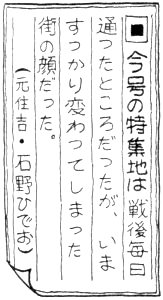 ■今号の特集地は戦後毎日
通ったところだったが、いま
すっかり変わってしまった
街の顔だった。
(元住吉・石野ひでお)